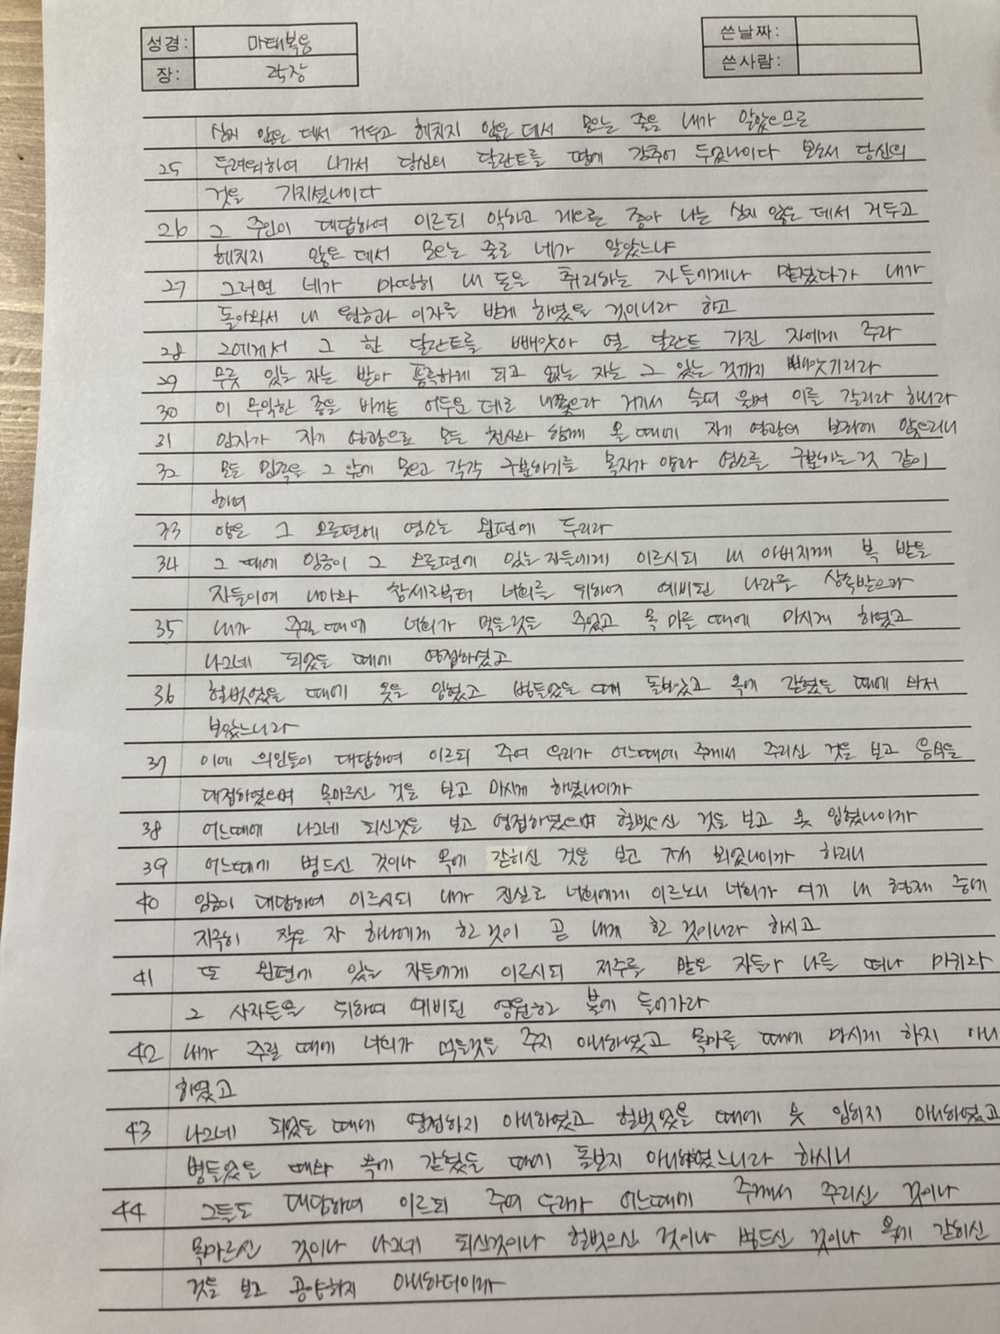 성경: 마태복음
장: 25장
쓴날짜:
쓴사람:
심지 않은 데서 거두고 헤치지 않은 데서 모으는 줄을 내가 알았으므로
25 두려워하여 나가서 당신의 달란트를 땅에 감추어 두었나이다 보소서 당신의
것을 가지셨나이다
26 그 주인이 대답하여 이르되 악하고 게으른 종아 나는 심지 않은 데서 거두고
헤치지 않은 데서 모으는 줄로 네가 알았느냐
27 그러면 네가 마땅히 내 돈을 취리하는 자들에게나 맡겼다가 내가
돌아와서 내 원금과 이자를 받게 하였을 것이니라 하고
28 그에게서 그 한 달란트를 빼앗아 열 달란트 가진 자에게 주라
29 무릇 있는 자는 받아 풍족하게 되고 없는 자는 그 있는 것까지 빼앗기리라
30 이 무익한 종을 바깥 어두운 데로 내쫓으라 거기서 슬피 울며 이를 갈리라 하니라
31 인자가 자기 영광으로 모든 천사와 함께 올 때에 자기 영광의 보좌에 앉으리니
32 모든 민족을 그 앞에 모으고 각각 구분하기를 목자가 양과 염소를 구분하는것 같이
하여
33 양은 그 오른편에 염소는 왼편에 두리라
34 그 때에 임금이 그 오른편에 있는 자들에게 이르시되 내 아버지께 복 받을
자들이여 나아와 창세로부터 너희를 위하여 예비된 나라를 상속받으라
35 내가 주릴 때에 너희가 먹을것을 주었고 목 마를 때에 마시게 하였고
나그네 되었을 때에 영접하였고
36 헐벗었을 때에 옷을 입혔고 병들었을 때에 돌보았고 옥에 갇혔을 때에 와서
보았느니라
37 이에 의인들이 대답하여 이르되 주여 우리가 어느때에 주께서 주리신 것을 보고 음식을
대접하였으며 목마르신 것을 보고 마시게 하였나이까
38 어느때에 나그네 되신것을 보고 영접하였으며 헐벗으신 것을 보고 옷 입혔나이까
39 어느때에 병드신 것이나 옥에 갇히신 것을 보고 가서 뵈었나이까 하리니
40 임금이 대답하여 이르시되 내가 진실로 너희에게 이르노니 너희가 여기 내 형제 중에
지극히 작은 자 하나에게 한 것이 곧 내게 한 것이니라 하시고
41 또 왼편에 있는 자들에게 이르시되 저주를 받은 자들아 나를 떠나 마귀와
그 사자들을 위하여 예비된 영원한 불에 들어가라
42 내가 주릴 때에 너희가 먹을것을 주지 아니하였고 목마를 때에 마시게 하지 아니
하였고
43 나그네 되었을 때에 영접하지 아니하였고 헐벗었을 때에 옷 입히지 아니하였고
병들었을 때와 옥에 갇혔을 때에 돌보지 아니하였느니라 하시니
44 그들도 대답하여 이르되 주여 우리가 어느때에 주께서 주리신 것이나
목마르신 것이나 나그네 되신것이나 헐벗으신 것이나 병드신 것이나 옥에 갇히신
것을 보고 공양하지 아니하더이까